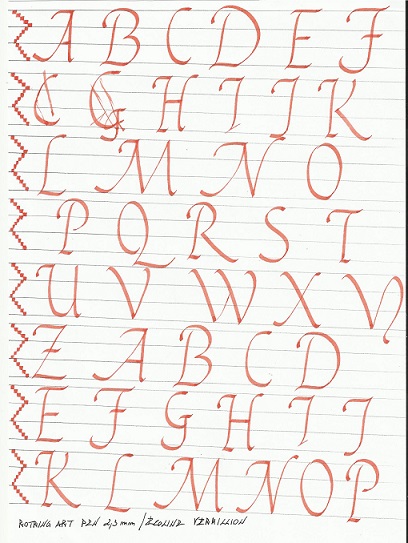 A B C D E F
G H I J K
L M N O
P Q R S T
U V W X Y
Z A B C D
E F G H I J
K L M N O P
ROTRING ART PEN 2,3 mm / VERMILLION